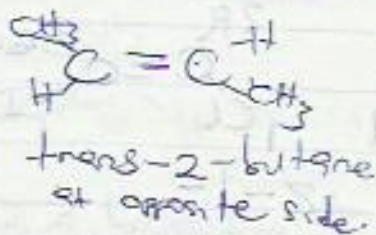 CH3 H
C = C
H CH3
trans-2-butane
at opposite side.